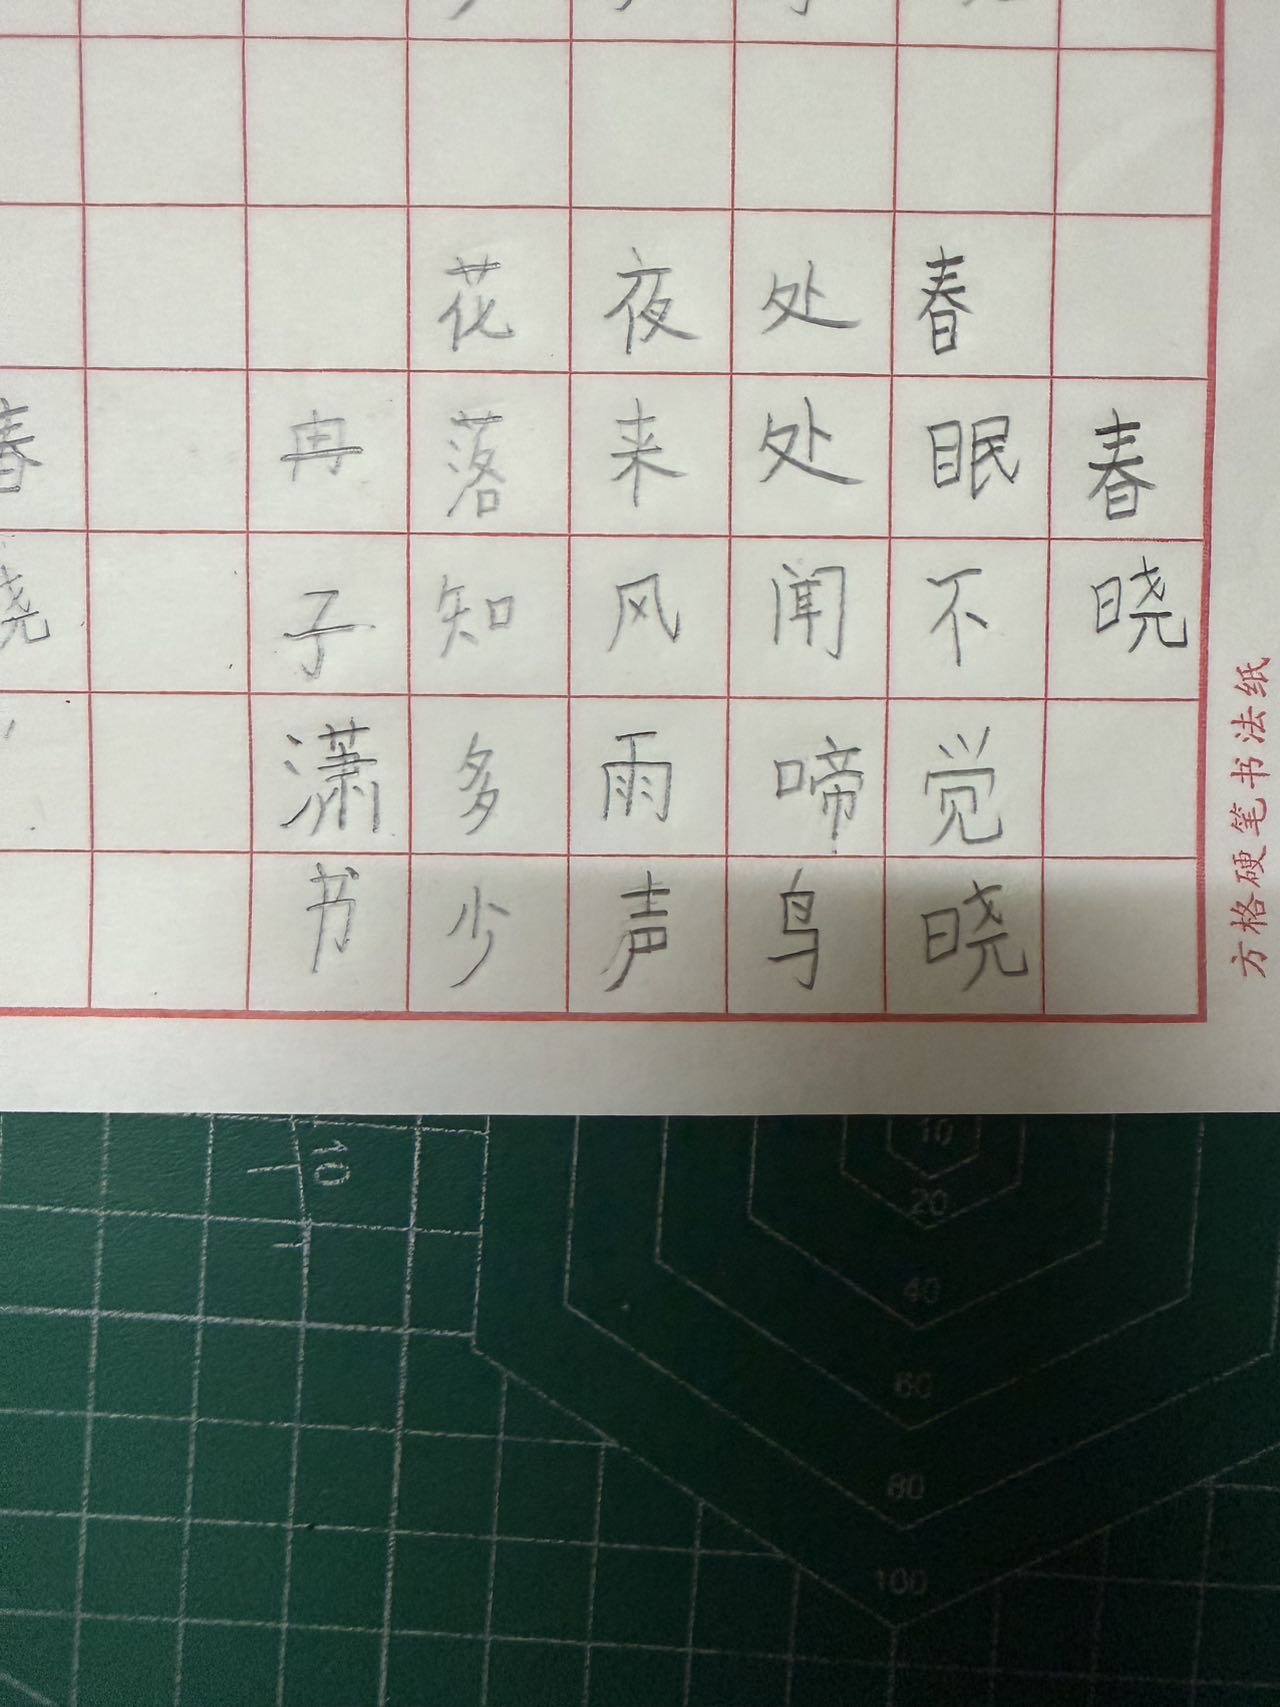 春晓
春眠不觉晓
处处闻啼鸟
夜来风雨声
花落知多少
冉子潇书
春晓
方格硬笔书法纸
10
10
20
40
60
80
100